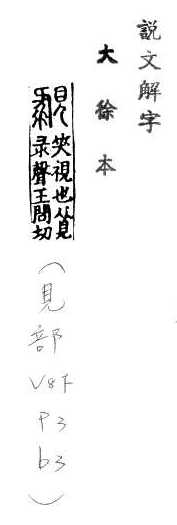 說文解字
大徐本
䚄 笑視也从見
录聲王問切
（見部V8下P3b3）